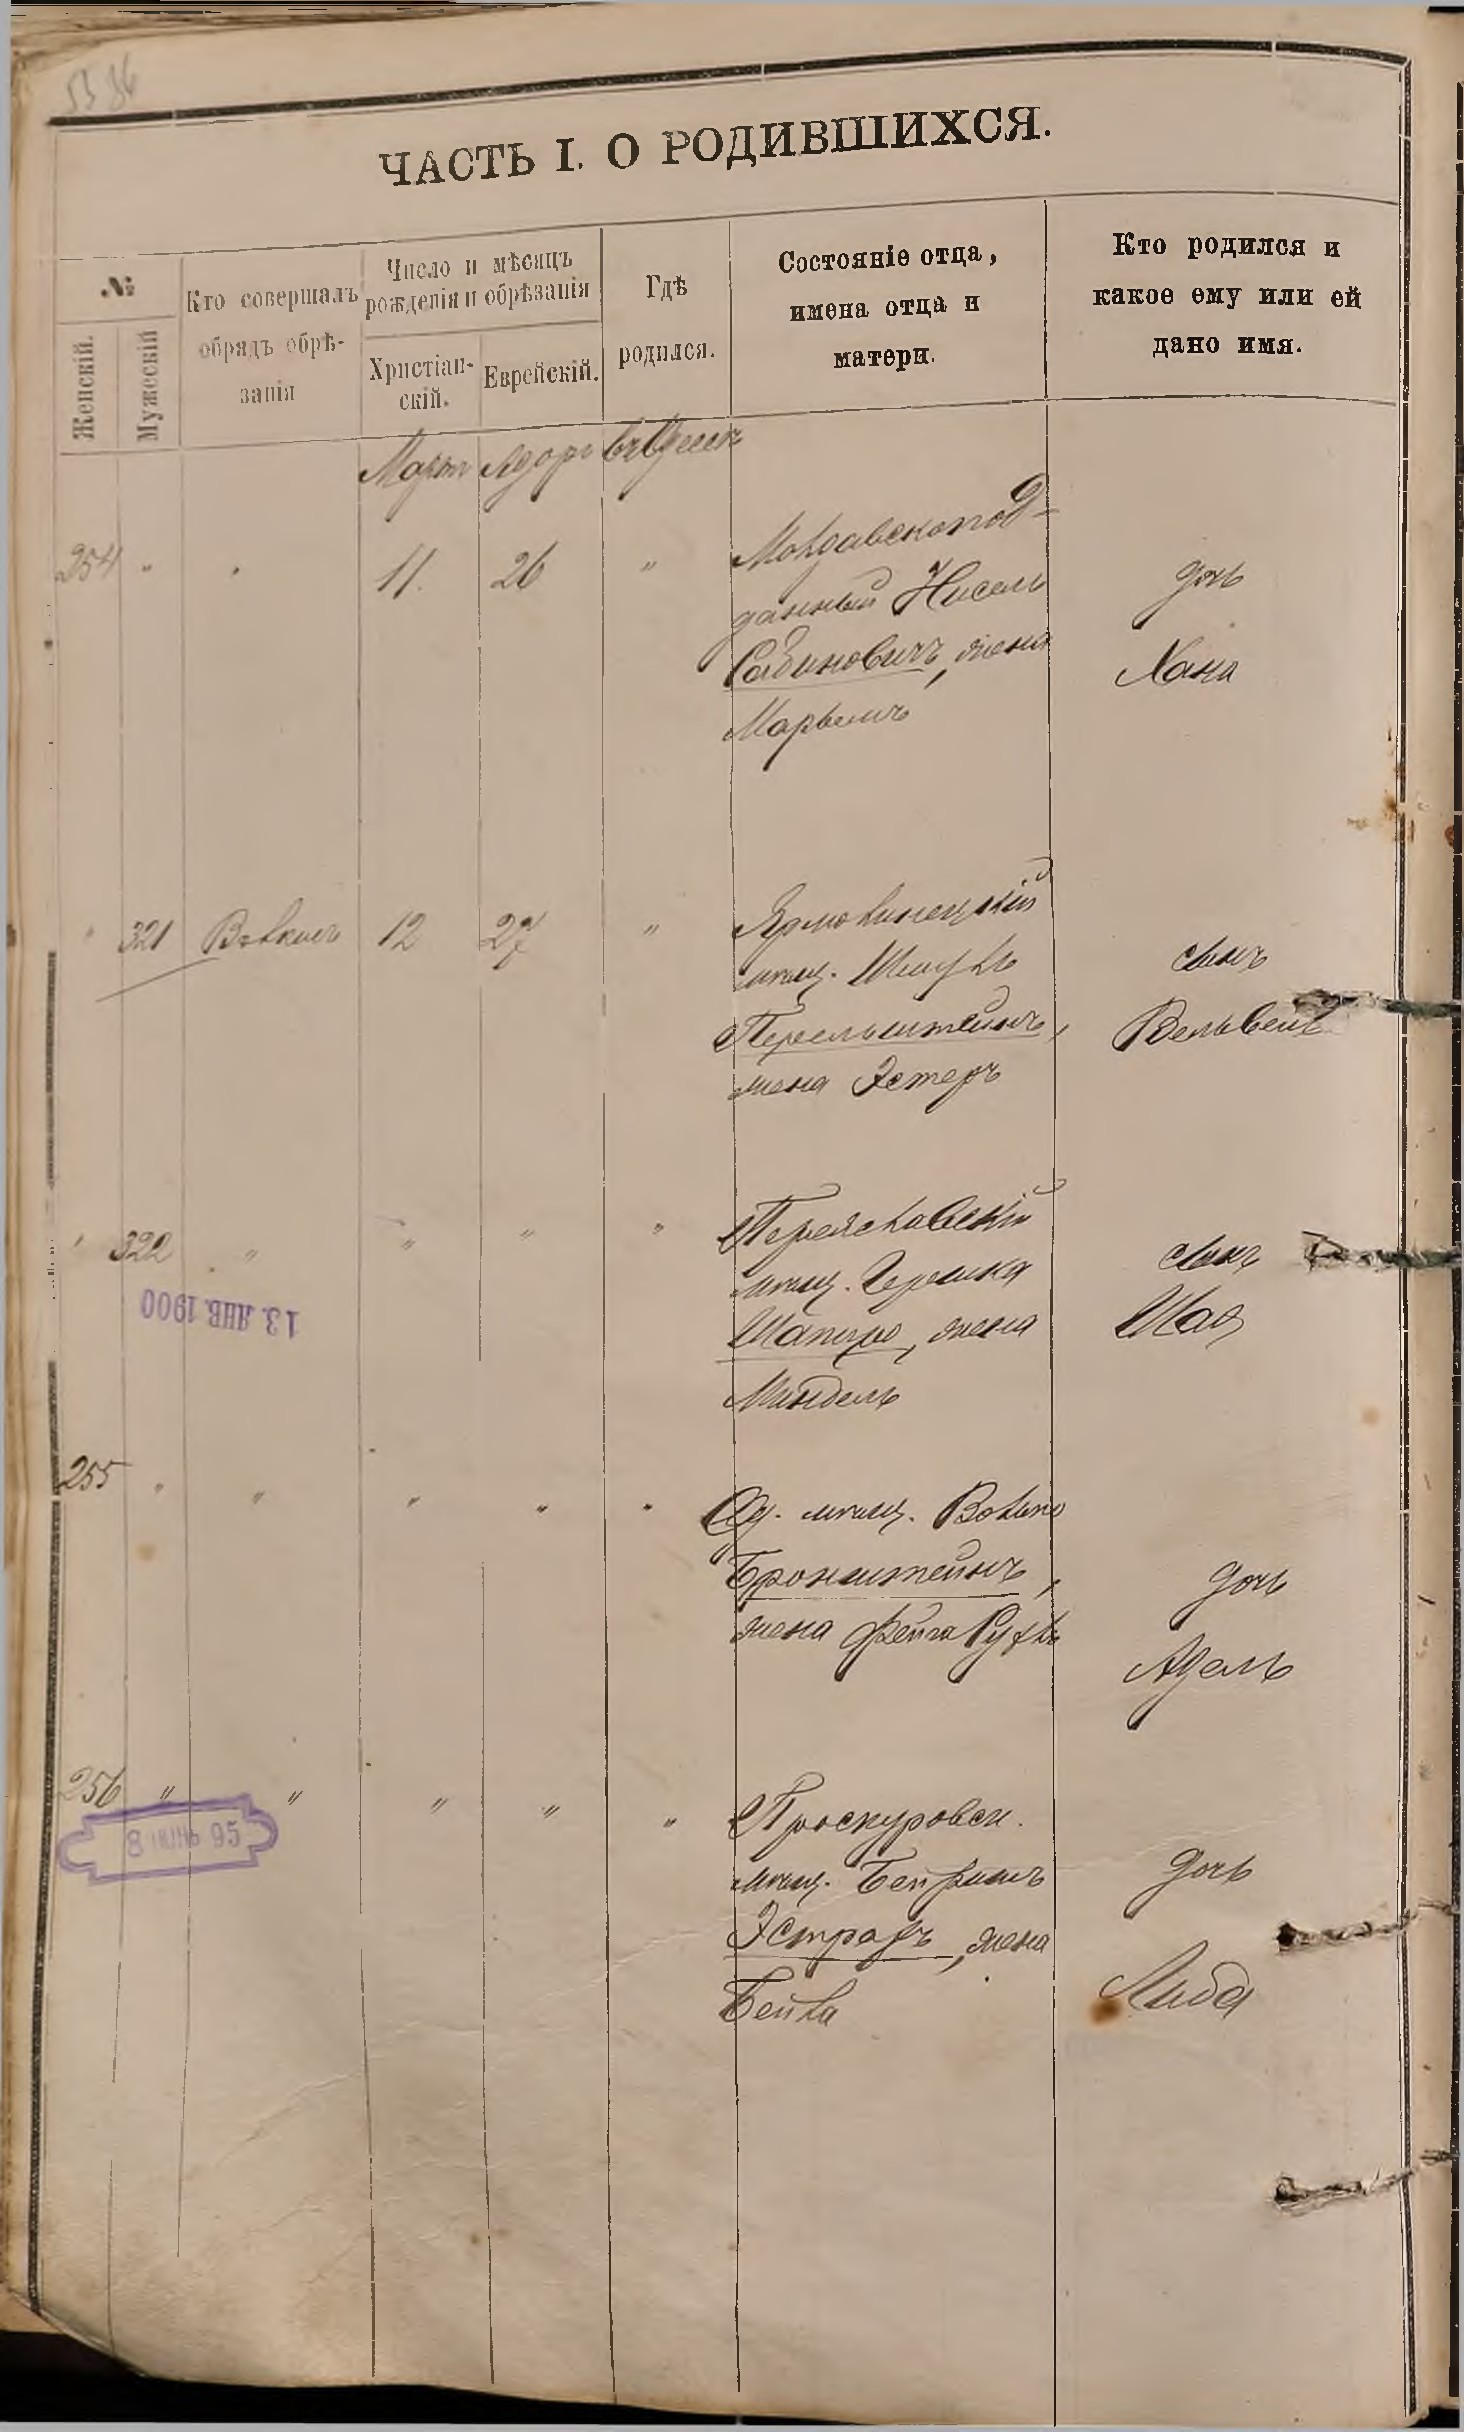 ЧАСТЬ I. О РОДИВШИХСЯ.
№
Женскій.
Мужескій
Кто совершалъ
обрядъ обрѣ-
занія
Число и мѣсяцъ
рожденія и обрѣзанія
Христіан-
скій.
Еврейскій.
Гдѣ
родился.
Состояніе отца,
имена отца и
матери.
Кто родился и
какое ему или ей
дано имя.
Мартъ Адоръ въ Одессѣ
254 " " 11. 26 "
Молдавскопод-
данный Нисель
Рабиновичъ, жена
Марьемъ
дочь
Хана
" 321 12 27 "
Ярмолинецкій
мѣщ. Шмуль
Перельштейнъ,
жена Эстеръ
сынъ
Вельвель
" 322 " " " "
Переяславскій
мѣщ. Гершка
Шапиро, жена
Миндель
сынъ
Шая
13. ЯНВ. 1900
255 " " " " "
Од. мѣщ. Волько
Бронштейнъ,
жена Фейга Рухль
дочь
Адель
256 " " " " "
Проскуровск.
мѣщ.
Эстрахъ, жена
Бейла
дочь
Либа
8 ІЮНЬ 95